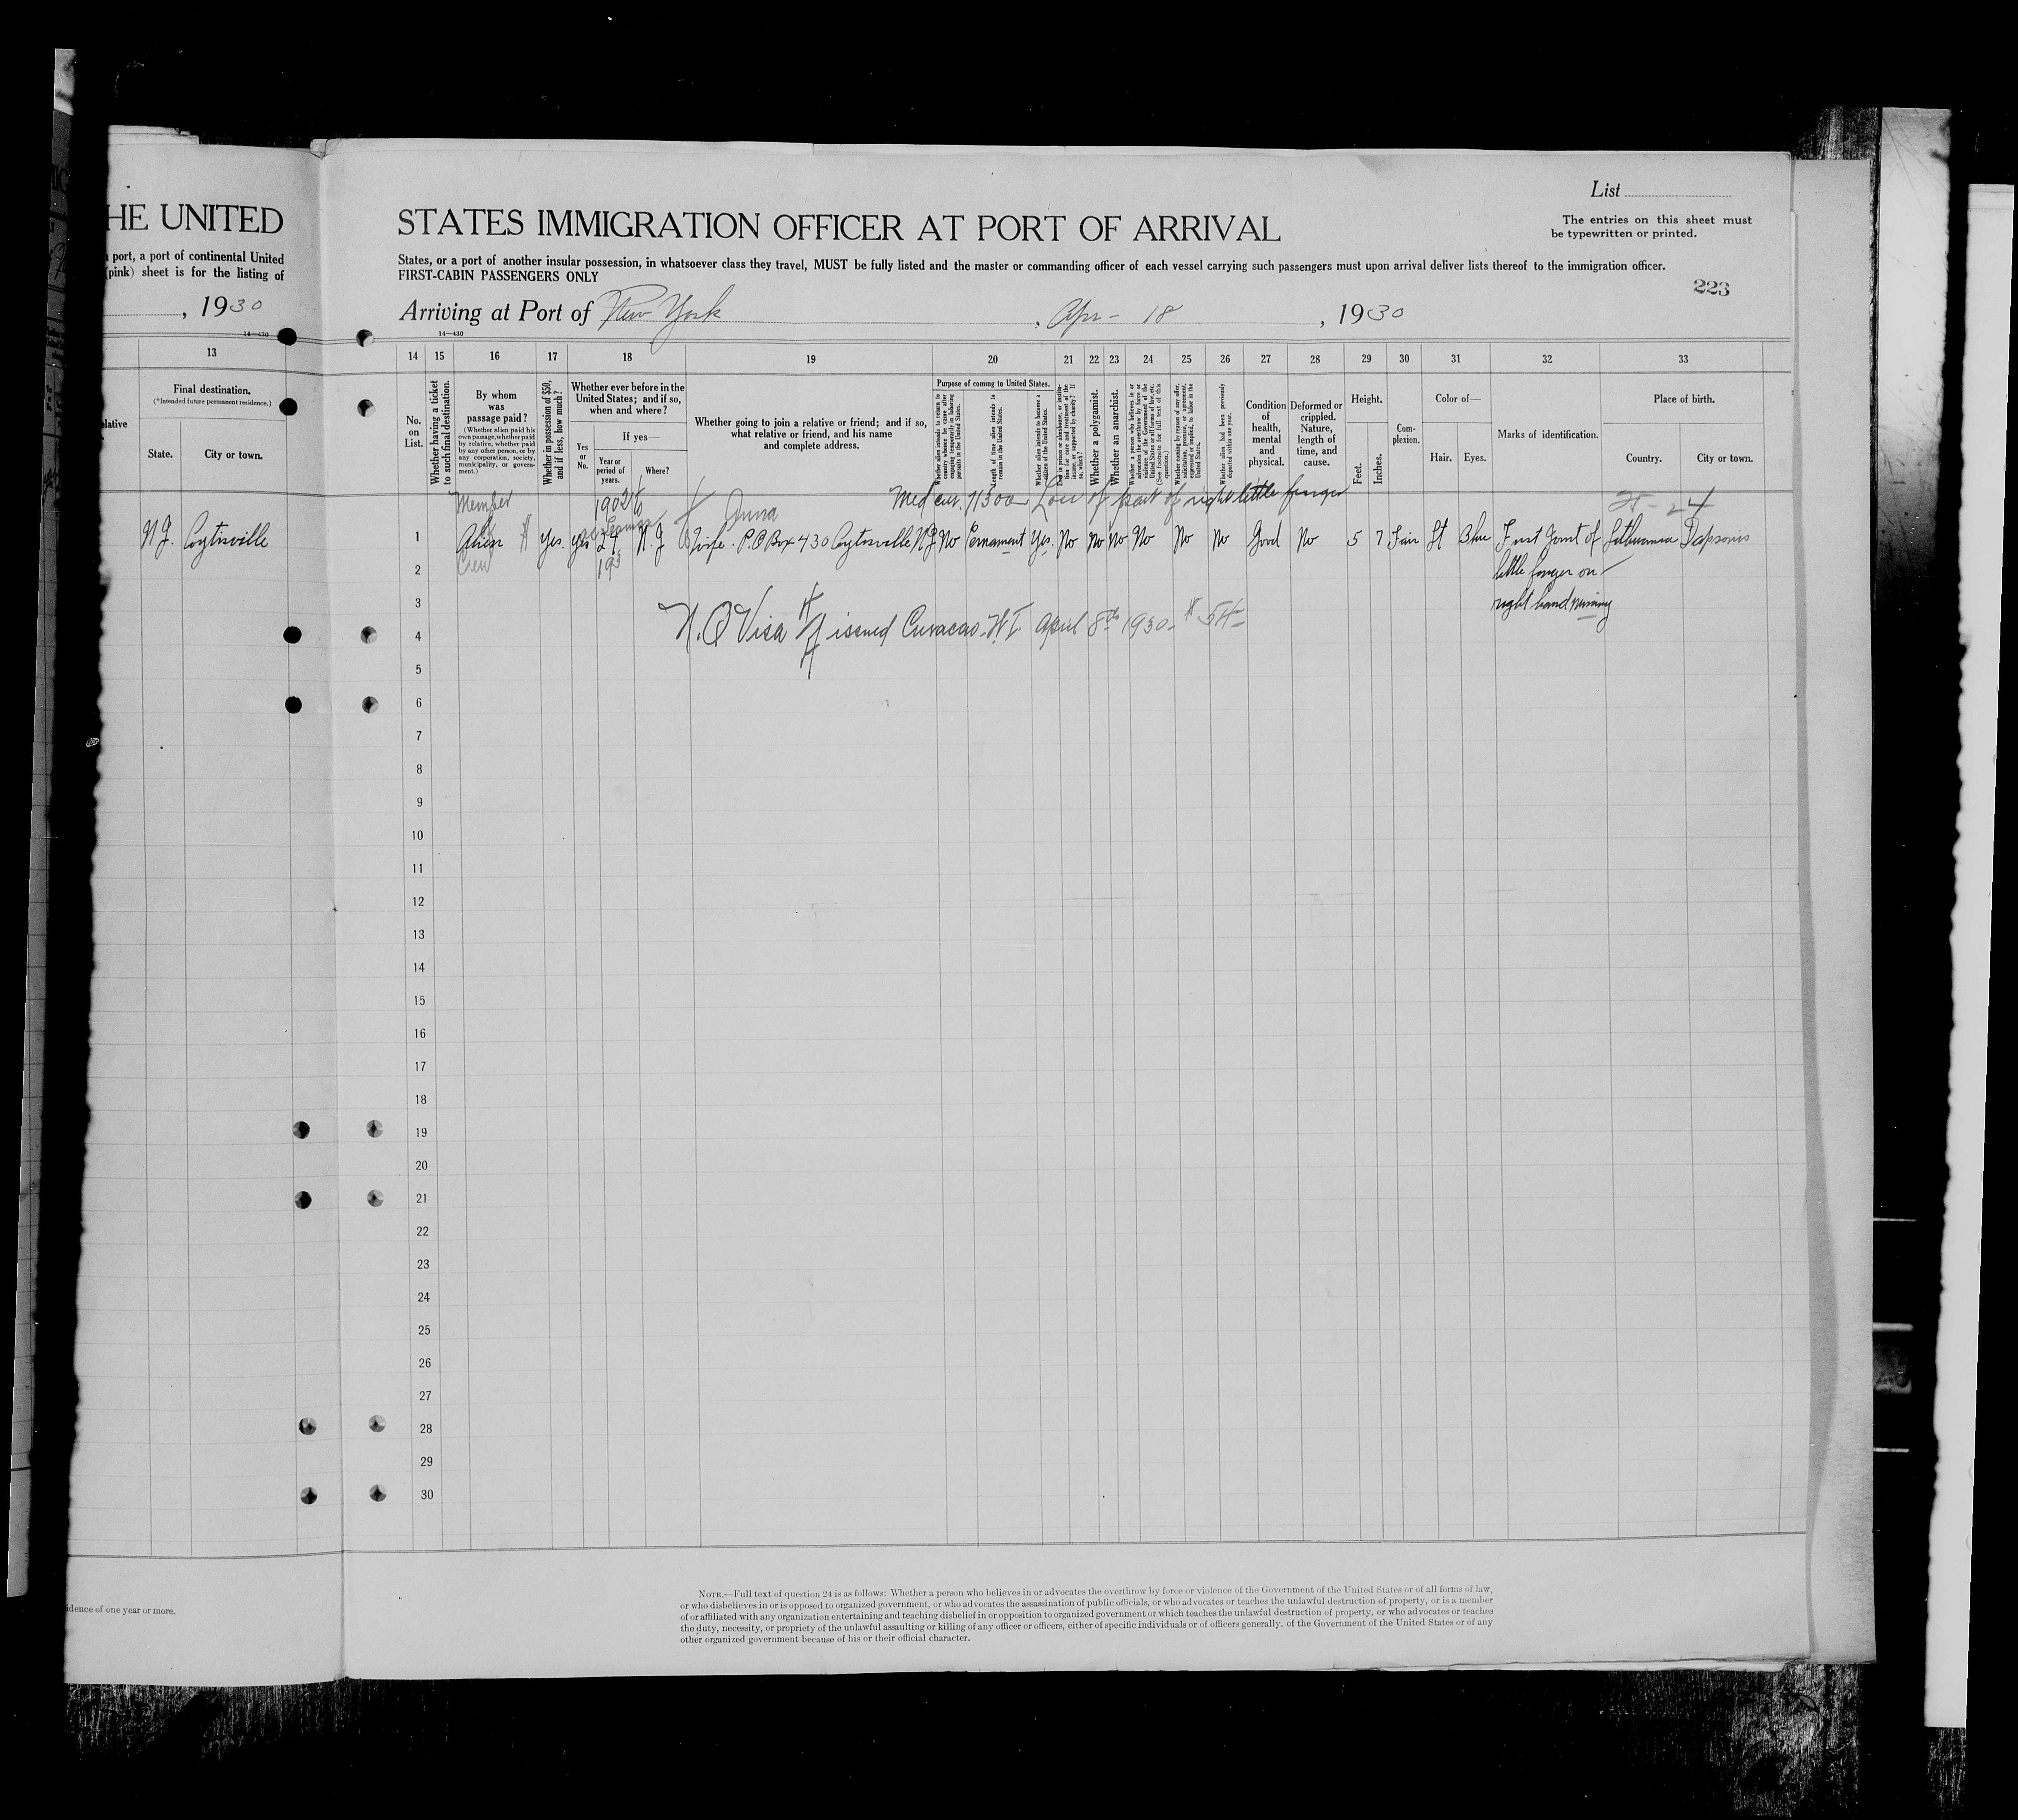 HE UNITED
port, a port of continental United
(pink) sheet is for the listing of
, 1930
14—430
13
Final destination.
(*Intended future permanent residence.)
elative
State.
City or town.
N.J. Coytsville
idence of one year or more.
List
STATES IMMIGRATION OFFICER AT PORT OF ARRIVAL
The entries on this sheet must
be typewritten or printed.
States, or a port of another insular possession, in whatsoever class they travel, MUST be fully listed and the master or commanding officer of each vessel carrying such passengers must upon arrival deliver lists thereof to the immigration officer.
FIRST-CABIN PASSENGERS ONLY
223
Arriving at Port of New York, Apr - 18, 1930
14—430
14 15 16 17 18 19 20 21 22 23 24 25 26 27 28 29 30 31 32 33
No. on List.
Whether having a ticket to such final destination.
By whom was passage paid?
(Whether alien paid his own passage, whether paid by relative, whether paid by any other person, or by any corporation, society, municipality, or government.)
Whether in possession of $50, and if less, how much?
Whether ever before in the United States; and if so, when and where?
Yes or No.
If yes—
Year or period of years.
Where?
Whether going to join a relative or friend; and if so, what relative or friend, and his name and complete address.
Purpose of coming to United States.
Whether alien intends to return to country whence he came after engaging temporarily in laboring pursuits in the United States.
Length of time alien intends to remain in the United States.
Whether alien intends to become a citizen of the United States.
Whether a polygamist.
Whether an anarchist.
Whether a person who believes in or advocates the overthrow by force or violence of the Government of the United States or all forms of law, etc. (See footnote for full text of this question.)
Whether coming by reason of any offer, solicitation, promise, or agreement, expressed or implied, to labor in the United States.
Whether alien had been previously deported within one year.
Condition of health, mental and physical.
Deformed or crippled. Nature, length of time, and cause.
Height.
Feet.
Inches.
Complexion.
Color of—
Hair.
Eyes.
Marks of identification.
Place of birth.
Country.
City or town.
Member 1902 to Anna Med cer. 11300 Loss of part of right little finger
1 Alien Yes. yes 24 N.J Wife. P.O Box 430 Coytesville NJ No Permanent Yes. No No No No No No Good No 5 7 Fair Lt Blue First Joint of Lithuania
2 Crew little finger on
3 right hand missing
4 N.Q Visa issued Curacao W I April 8th 1930 - # 54
5
6
7
8
9
10
11
12
13
14
15
16
17
18
19
20
21
22
23
24
25
26
27
28
29
30
NOTE.—Full text of question 24 is as follows: Whether a person who believes in or advocates the overthrow by force or violence of the Government of the United States or of all forms of law,
or who disbelieves in or is opposed to organized government, or who advocates the assassination of public officials, or who advocates or teaches the unlawful destruction of property, or is a member
of or affiliated with any organization entertaining and teaching disbelief in or opposition to organized government or which teaches the unlawful destruction of property, or who advocates or teaches
the duty, necessity, or propriety of the unlawful assaulting or killing of any officer or officers, either of specific individuals or of officers generally, of the Government of the United States or of any
other organized government because of his or their official character.